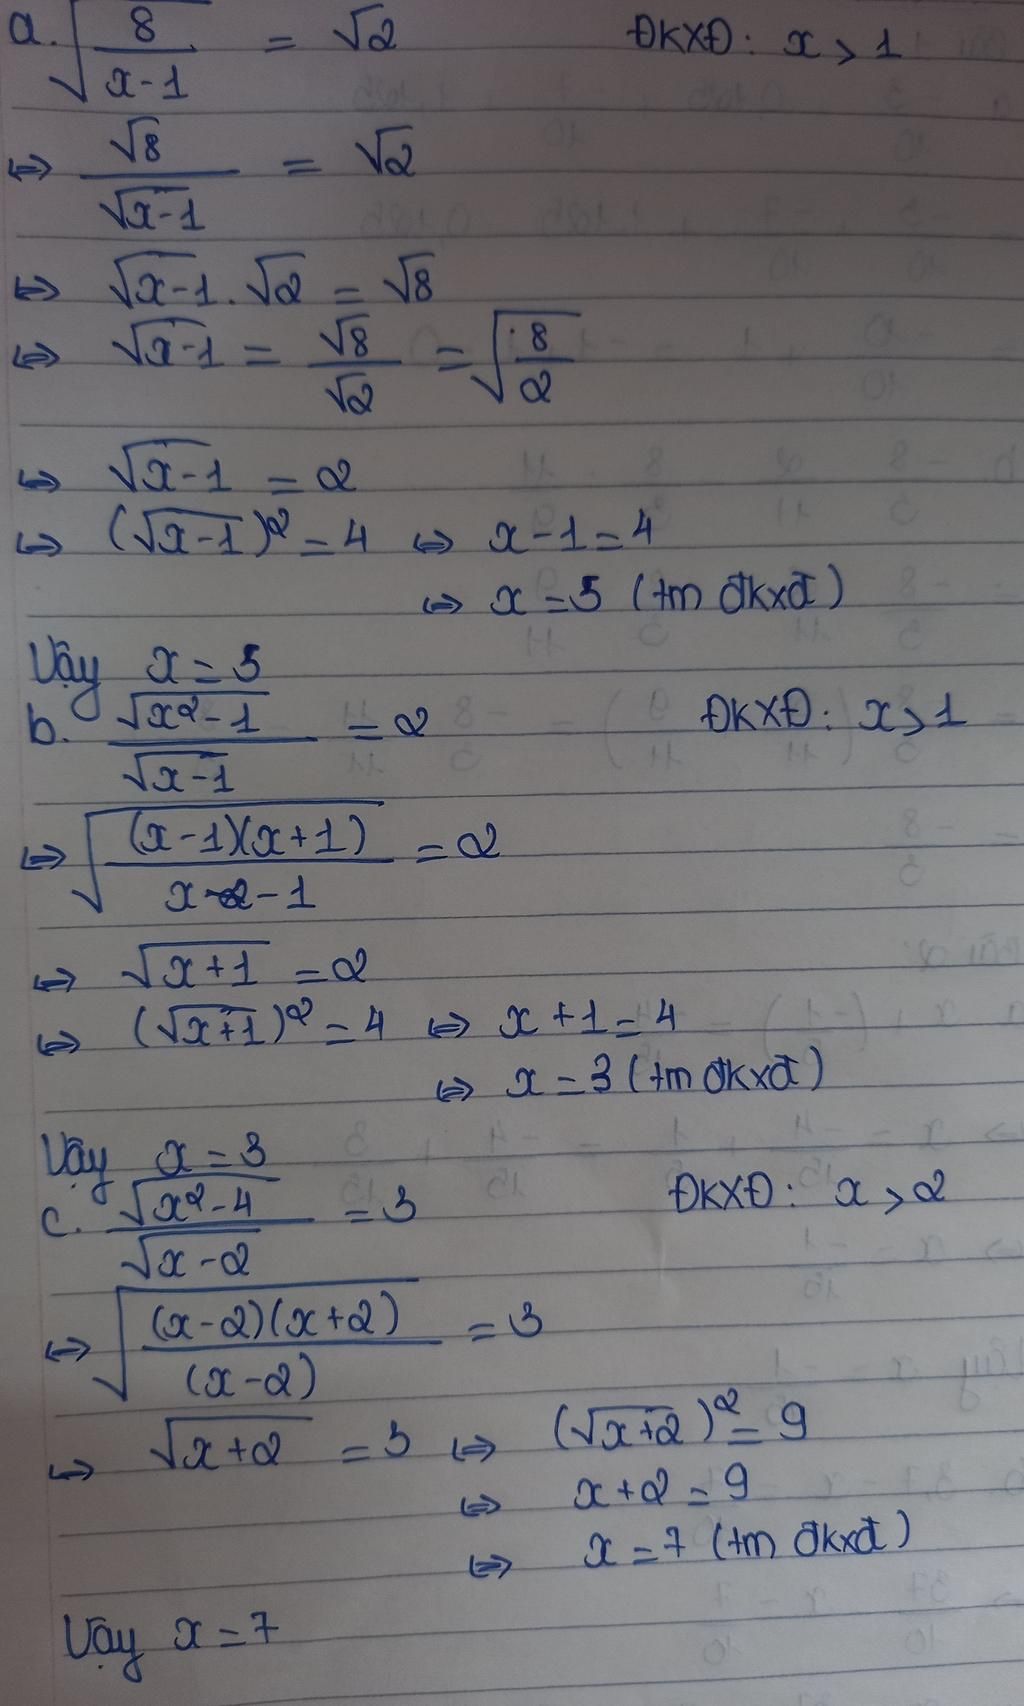 a. √(8/(x-1)) = √2 ĐKXĐ: x > 1
⇔ √8/√(x-1) = √2
⇔ √(x-1) . √2 = √8
⇔ √(x-1) = √8/√2 = √(8/2)
⇔ √(x-1) = 2
⇔ (√(x-1))² = 4 ⇔ x-1 = 4
⇔ x = 5 (tm đkxđ)
Vậy x = 5
b. √(x²-1)/√(x-1) = 2 ĐKXĐ: x > 1
⇔ √((x-1)(x+1)/(x-1)) = 2
⇔ √(x+1) = 2
⇔ (√(x+1))² = 4 ⇔ x+1 = 4
⇔ x = 3 (tm đkxđ)
Vậy x = 3
c. √(x²-4)/√(x-2) = 3 ĐKXĐ: x > 2
⇔ √((x-2)(x+2)/(x-2)) = 3
⇔ √(x+2) = 3 ⇔ (√(x+2))² = 9
⇔ x+2 = 9
⇔ x = 7 (tm đkxđ)
Vậy x = 7